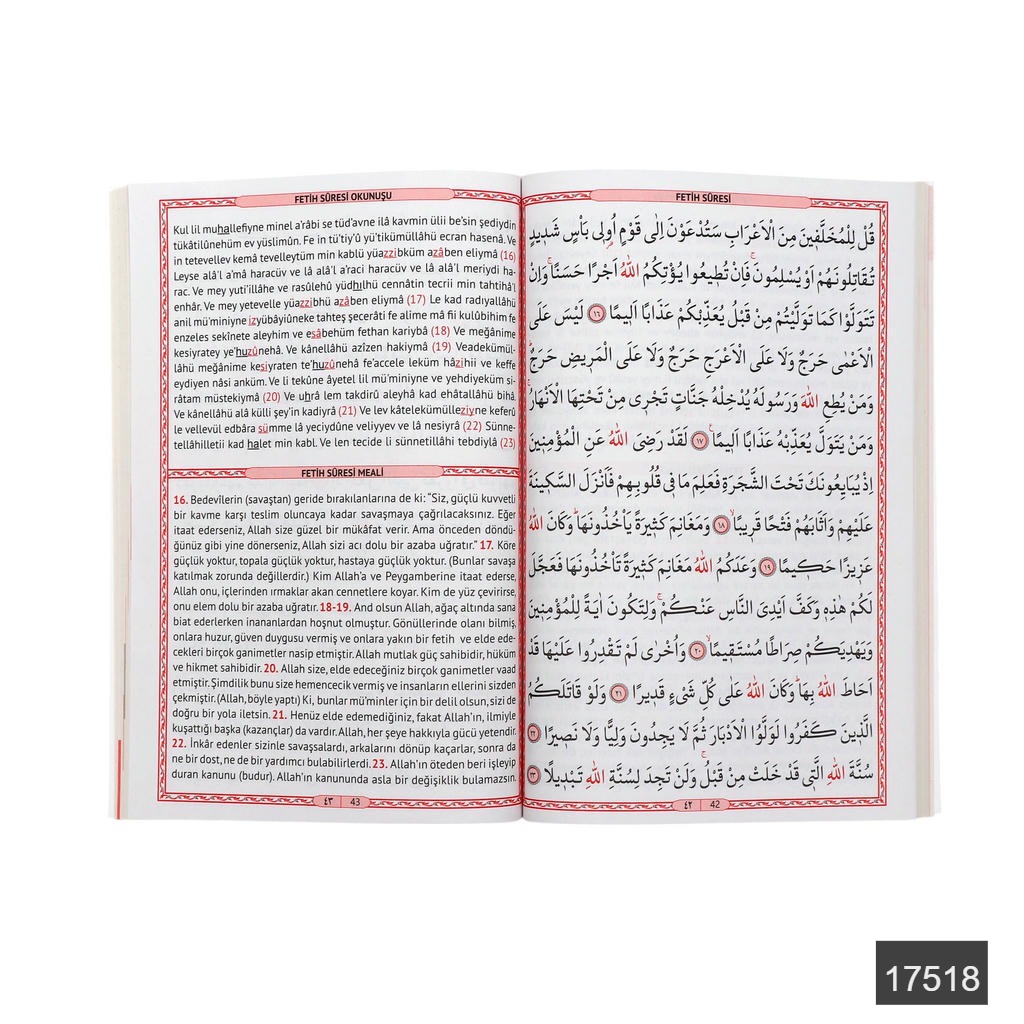 FETİH SÛRESİ OKUNUŞU
Kul lil muhallefiyne minel a'râbi se tüd'avne ilâ kavmin ülii be'sin şediydin
tükâtilûnehüm ev yüslimûn. Fe in tü'tiy'û yü'tikümüllâhü ecran hasenâ. Ve
in tetevellev kemâ tevelleytüm min kablü yüazzibküm azâben eliymâ (16)
Leyse alâ'l a'mâ haracüv ve lâ alâ'l a'raci haracüv ve lâ alâ'l meriydi ha-
rac. Ve mey yuti'illâhe ve rasûlehû yüdhilhü cennâtin tecrii min tahtihâ'l
enhâr. Ve mey yetevelle yüazzibhü azâben eliymâ (17) Le kad radıyallâhü
anil mü'miniyne izyübâyiûneke tahteş şecerâti fe alime mâ fii kulûbihim fe
enzeles sekînete aleyhim ve esâbehüm fethan kariybâ (18) Ve meğânime
kesiyratey ye'huzûnehâ. Ve kânellâhü azîzen hakiymâ (19) Veadekümül-
lâhü meğânime kesiyraten te'huzûnehâ fe'accele leküm hâzihii ve keffe
eydiyen nâsi anküm. Ve li tekûne âyetel lil mü'miniyne ve yehdiyeküm si-
râtam müstekiymâ (20) Ve uhrâ lem takdirû aleyhâ kad ehâtallâhü bihâ.
Ve kânellâhü alâ külli şey'in kadiyrâ (21) Ve lev kâtelekümülleziyne keferû
le vellevül edbâra sümme lâ yeciydûne veliyyev ve lâ nesiyrâ (22) Sünne-
tellâhilletii kad halet min kabl. Ve len tecide li sünnetillâhi tebdiylâ (23)
FETİH SÛRESİ MEALİ
16. Bedevîlerin (savaştan) geride bırakılanlarına de ki: "Siz, güçlü kuvvetli
bir kavme karşı teslim oluncaya kadar savaşmaya çağrılacaksınız. Eğer
itaat ederseniz, Allah size güzel bir mükâfat verir. Ama önceden döndü-
ğünüz gibi yine dönerseniz, Allah sizi acı dolu bir azaba uğratır." 17. Köre
güçlük yoktur, topala güçlük yoktur, hastaya güçlük yoktur. (Bunlar savaşa
katılmak zorunda değillerdir.) Kim Allah'a ve Peygamberine itaat ederse,
Allah onu, içlerinden ırmaklar akan cennetlere koyar. Kim de yüz çevirirse,
onu elem dolu bir azaba uğratır. 18-19. And olsun Allah, ağaç altında sana
biat ederlerken inananlardan hoşnut olmuştur. Gönüllerinde olanı bilmiş,
onlara huzur, güven duygusu vermiş ve onlara yakın bir fetih ve elde ede-
cekleri birçok ganimetler nasip etmiştir. Allah mutlak güç sahibidir, hüküm
ve hikmet sahibidir. 20. Allah size, elde edeceğiniz birçok ganimetler vaad
etmiştir. Şimdilik bunu size hemencecik vermiş ve insanların ellerini sizden
çekmiştir. (Allah, böyle yaptı) Ki, bunlar mü'minler için bir delil olsun, sizi de
doğru bir yola iletsin. 21. Henüz elde edemediğiniz, fakat Allah'ın, ilmiyle
kuşattığı başka (kazançlar) da vardır. Allah, her şeye hakkıyla gücü yetendir.
22. İnkâr edenler sizinle savaşsalardı, arkalarını dönüp kaçarlar, sonra da
ne bir dost, ne de bir yardımcı bulabilirlerdi. 23. Allah'ın öteden beri işleyip
duran kanunu (budur). Allah'ın kanununda asla bir değişiklik bulamazsın.
٤٣ 43
FETİH SÛRESİ
قُلْ لِلْمُخَلَّفٖينَ مِنَ الْاَعْرَابِ سَتُدْعَوْنَ اِلٰى قَوْمٍ اُو۬لٖى بَاْسٍ شَدٖيدٍ
تُقَاتِلُونَهُمْ اَوْ يُسْلِمُونَۚ فَاِنْ تُطٖيعُوا يُؤْتِكُمُ اللّٰهُ اَجْرًا حَسَنًاۚ وَاِنْ
تَتَوَلَّوْا كَمَا تَوَلَّيْتُمْ مِنْ قَبْلُ يُعَذِّبْكُمْ عَذَابًا اَلٖيمًا ﴿١٦﴾ لَيْسَ عَلَى
الْاَعْمٰى حَرَجٌ وَلَا عَلَى الْاَعْرَجِ حَرَجٌ وَلَا عَلَى الْمَرٖيضِ حَرَجٌۜ
وَمَنْ يُطِعِ اللّٰهَ وَرَسُولَهُ يُدْخِلْهُ جَنَّاتٍ تَجْرٖى مِنْ تَحْتِهَا الْاَنْهَارُۚ
وَمَنْ يَتَوَلَّ يُعَذِّبْهُ عَذَابًا اَلٖيمًا ﴿١٧﴾ لَقَدْ رَضِىَ اللّٰهُ عَنِ الْمُؤْمِنٖينَ
اِذْ يُبَايِعُونَكَ تَحْتَ الشَّجَرَةِ فَعَلِمَ مَا فٖى قُلُوبِهِمْ فَاَنْزَلَ السَّكٖينَةَ
عَلَيْهِمْ وَاَثَابَهُمْ فَتْحًا قَرٖيبًاۙ ﴿١٨﴾ وَمَغَانِمَ كَثٖيرَةً يَاْخُذُونَهَاۜ وَكَانَ اللّٰهُ
عَزٖيزًا حَكٖيمًا ﴿١٩﴾ وَعَدَكُمُ اللّٰهُ مَغَانِمَ كَثٖيرَةً تَاْخُذُونَهَا فَعَجَّلَ
لَكُمْ هٰذِهٖ وَكَفَّ اَيْدِىَ النَّاسِ عَنْكُمْۚ وَلِتَكُونَ اٰيَةً لِلْمُؤْمِنٖينَ
وَيَهْدِيَكُمْ صِرَاطًا مُسْتَقٖيمًاۙ ﴿٢٠﴾ وَاُخْرٰى لَمْ تَقْدِرُوا عَلَيْهَا قَدْ
اَحَاطَ اللّٰهُ بِهَاۜ وَكَانَ اللّٰهُ عَلٰى كُلِّ شَىْءٍ قَدٖيرًا ﴿٢١﴾ وَلَوْ قَاتَلَكُمُ
الَّذٖينَ كَفَرُوا لَوَلَّوُا الْاَدْبَارَ ثُمَّ لَا يَجِدُونَ وَلِيًّا وَلَا نَصٖيرًا ﴿٢٢﴾
سُنَّةَ اللّٰهِ الَّتٖى قَدْ خَلَتْ مِنْ قَبْلُۚ وَلَنْ تَجِدَ لِسُنَّةِ اللّٰهِ تَبْدٖيلًا ﴿٢٣﴾
٤٢ 42
17518